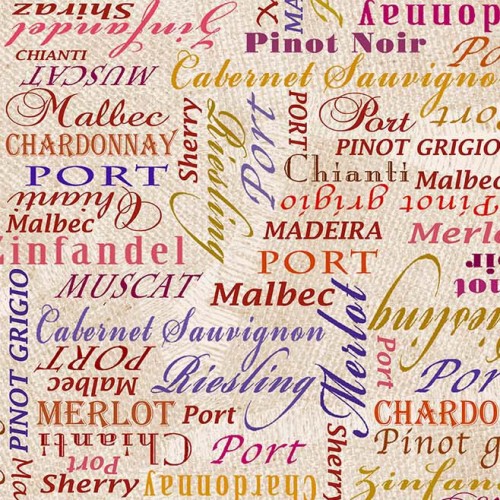 Shiraz
Zinfandel
Chardonnay
Pinot Noir
CHIANTI
MUSCAT
Cabernet Sauvigno
Malbec
Sherry
Riesling
Port
PORT
Port
Port
CHARDONNAY
PINOT GRIGIO
PORT
Chianti
Malbec
Chianti
Pinot grigio
Pinot
Malbec
MADEIRA
Merl
Zinfandel
PORT
MUSCAT
Malbec
Riesling
PINOT GRIGIO
Cabernet Sauvignon
Merlot
PORT
Port
Malbec
Riesling
Port
MERLOT
Port
CHARDO
Chianti
Port
Sherry
Pinot g
Port
Sherry
Chardonnay
Zinfande